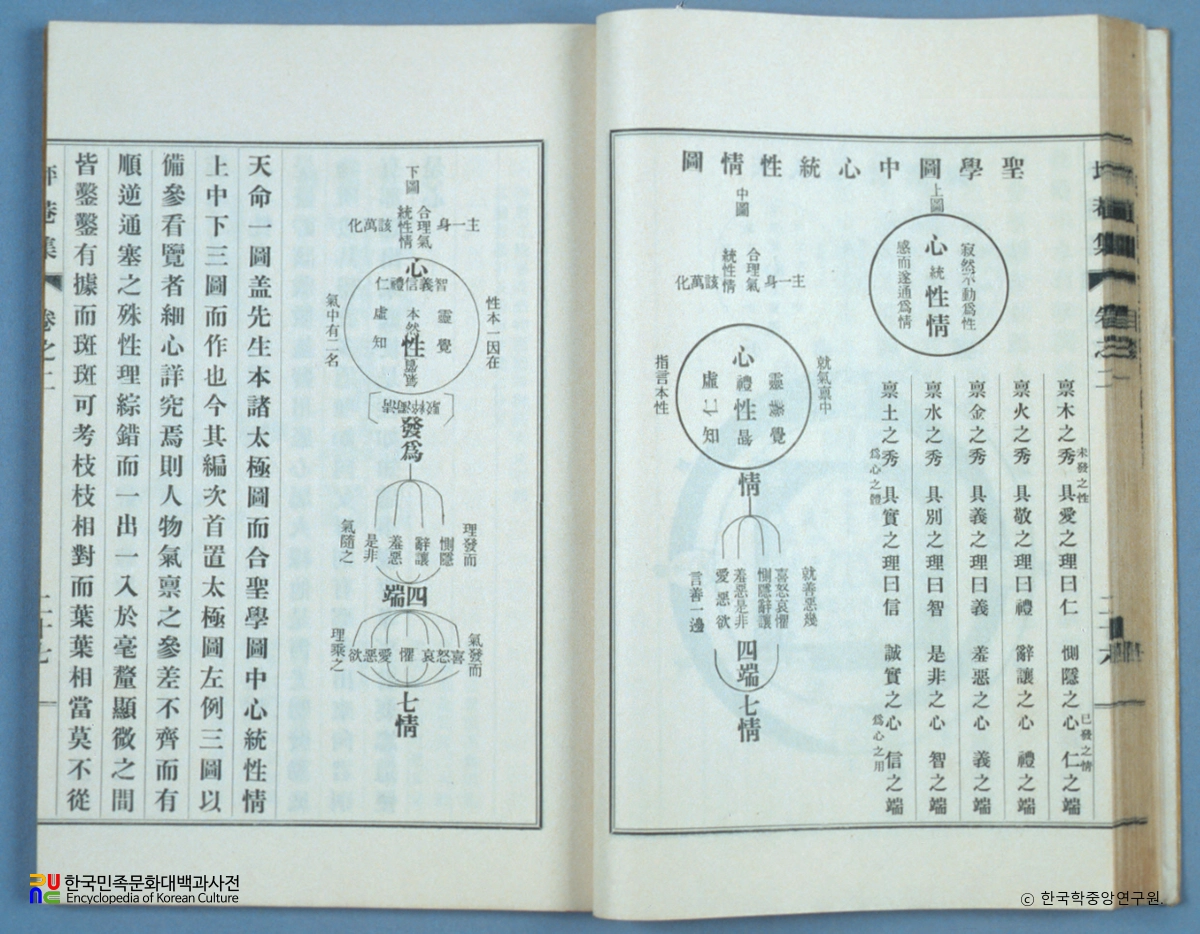 聖學圖中心統性情圖
上圖
寂然不動爲性
心統性情
感而遂通爲情
未發之性
已發之情
禀木之秀 具愛之理曰仁 惻隱之心 仁之端
禀火之秀 具敬之理曰禮 辭讓之心 禮之端
禀金之秀 具義之理曰義 羞惡之心 義之端
禀水之秀 具別之理曰智 是非之心 智之端
禀土之秀 具實之理曰信 誠實之心 信之端
爲心之體
爲心之用
中圖
主一身
合理氣
統性情
該萬化
就氣禀中
靈
覺
心
禮
性
虛
仁
知
指言本性
情
就善惡幾
喜怒哀懼
惻隱辭讓
羞惡是非
愛惡欲
言善一邊
四端
七情
下圖
主一身
合理氣
統性情
該萬化
心
智義信禮仁
性本一因在
靈
覺
本然
性
虛
知
氣中有二名
發爲
理發而
惻隱
辭讓
羞惡
是非
氣隨之
四端
氣發而
喜怒哀懼愛惡欲
理乘之
七情
天命一圖盖先生本諸太極圖而合聖學圖中心統性情
上中下三圖而作也今其編次首置太極圖左例三圖以
備參看覽者細心詳究焉則人物氣禀之參差不齊而有
順逆通塞之殊性理綜錯而一出一入於毫釐顯微之間
皆鑿鑿有據而斑斑可考枝枝相對而葉葉相當莫不從
卷之二
한국민족문화대백과사전
Encyclopedia of Korean Culture
ⓒ 한국학중앙연구원.